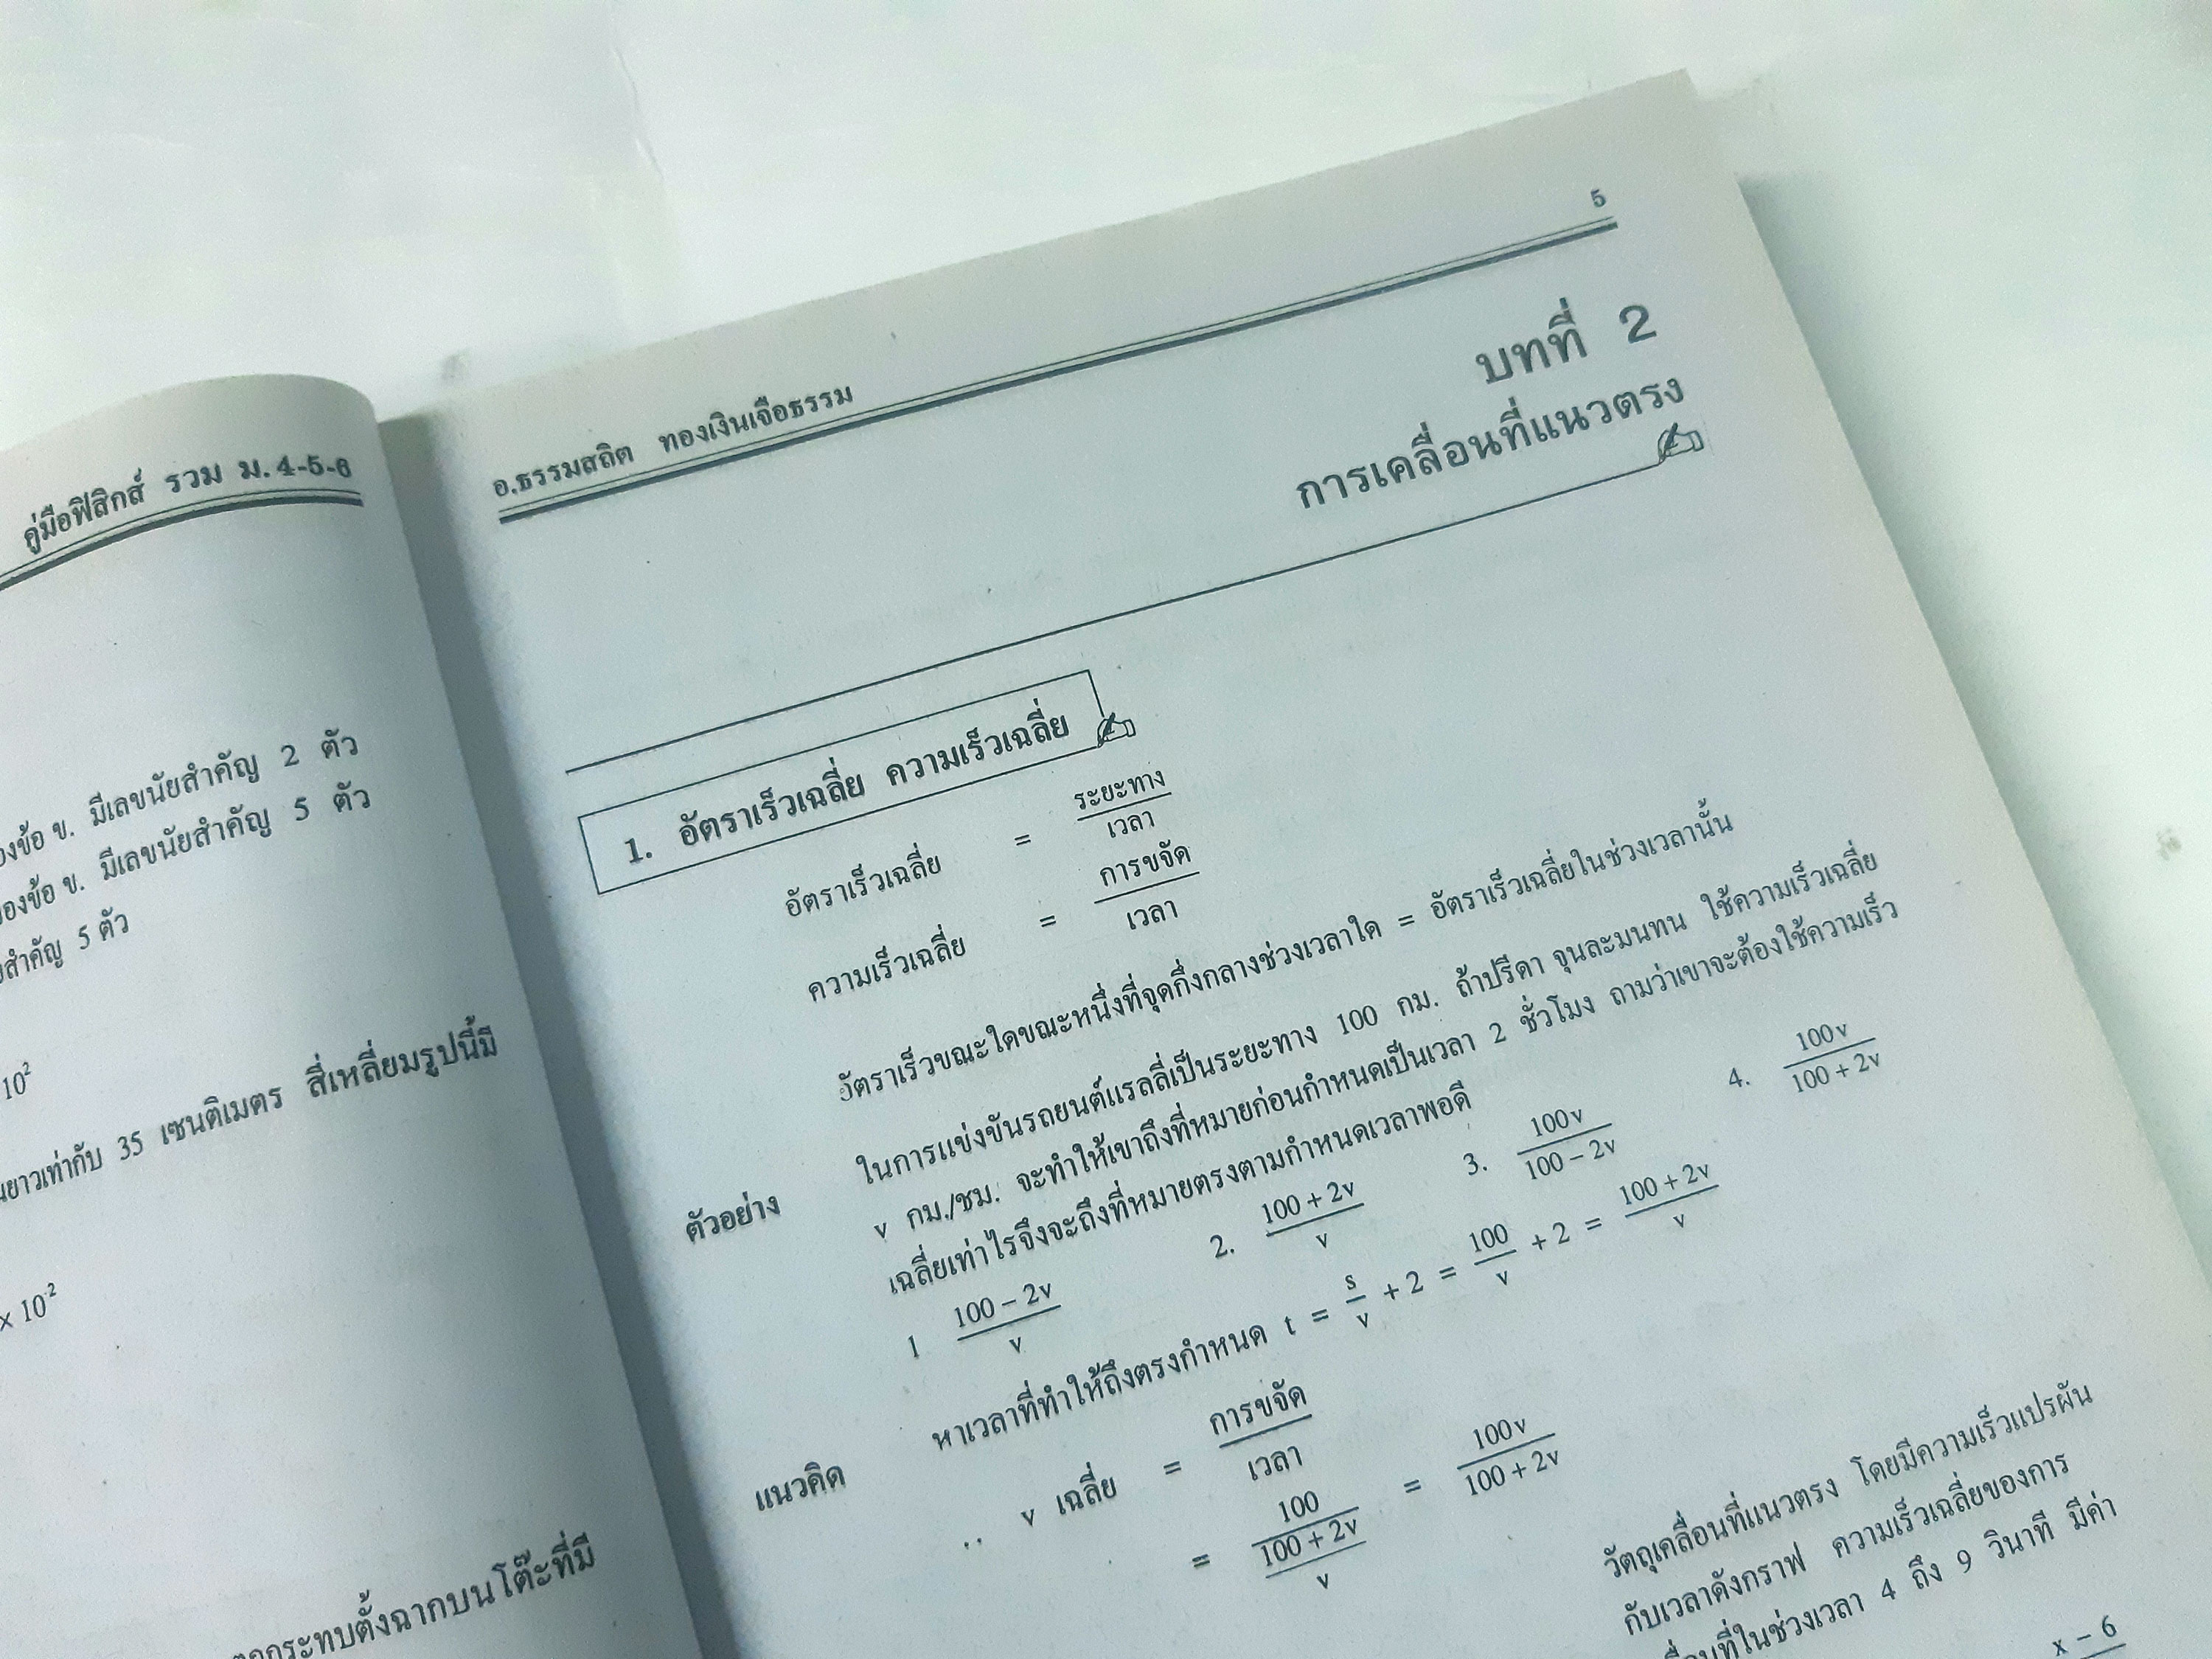 คู่มือฟิสิกส์ รวม ม. 4-5-6
องข้อ ข. มีเลขนัยสำคัญ 2 ตัว
องข้อ ข. มีเลขนัยสำคัญ 5 ตัว
สำคัญ 5 ตัว
10²
ยาวเท่ากับ 35 เซนติเมตร สี่เหลี่ยมรูปนี้มี
× 10⁻²
กระทบตั้งฉากบนโต๊ะที่มี
5
อ.ธรรมสถิต ทองเงินเจือธรรม
บทที่ 2
การเคลื่อนที่แนวตรง
1. อัตราเร็วเฉลี่ย ความเร็วเฉลี่ย
อัตราเร็วเฉลี่ย = ระยะทาง / เวลา
ความเร็วเฉลี่ย = การขจัด / เวลา
อัตราเร็วขณะใดขณะหนึ่งที่จุดกึ่งกลางช่วงเวลาใด = อัตราเร็วเฉลี่ยในช่วงเวลานั้น
ตัวอย่าง ในการแข่งขันรถยนต์แรลลี่เป็นระยะทาง 100 กม. ถ้าปรีดา จุนละมนทน ใช้ความเร็วเฉลี่ย
v กม./ชม. จะทำให้เขาถึงที่หมายก่อนกำหนดเป็นเวลา 2 ชั่วโมง ถามว่าเขาจะต้องใช้ความเร็ว
เฉลี่ยเท่าไรจึงจะถึงที่หมายตรงตามกำหนดเวลาพอดี
1 (100 − 2v)/v 2. (100 + 2v)/v 3. 100v/(100 − 2v) 4. 100v/(100 + 2v)
แนวคิด หาเวลาที่ทำให้ถึงตรงกำหนด t = s/v + 2 = 100/v + 2 = (100 + 2v)/v
.. v เฉลี่ย = การขจัด / เวลา
= 100/((100 + 2v)/v) = 100v/(100 + 2v)
วัตถุเคลื่อนที่แนวตรง โดยมีความเร็วแปรผัน
กับเวลาดังกราฟ ความเร็วเฉลี่ยของการ
ที่ในช่วงเวลา 4 ถึง 9 วินาที มีค่า
x − 6